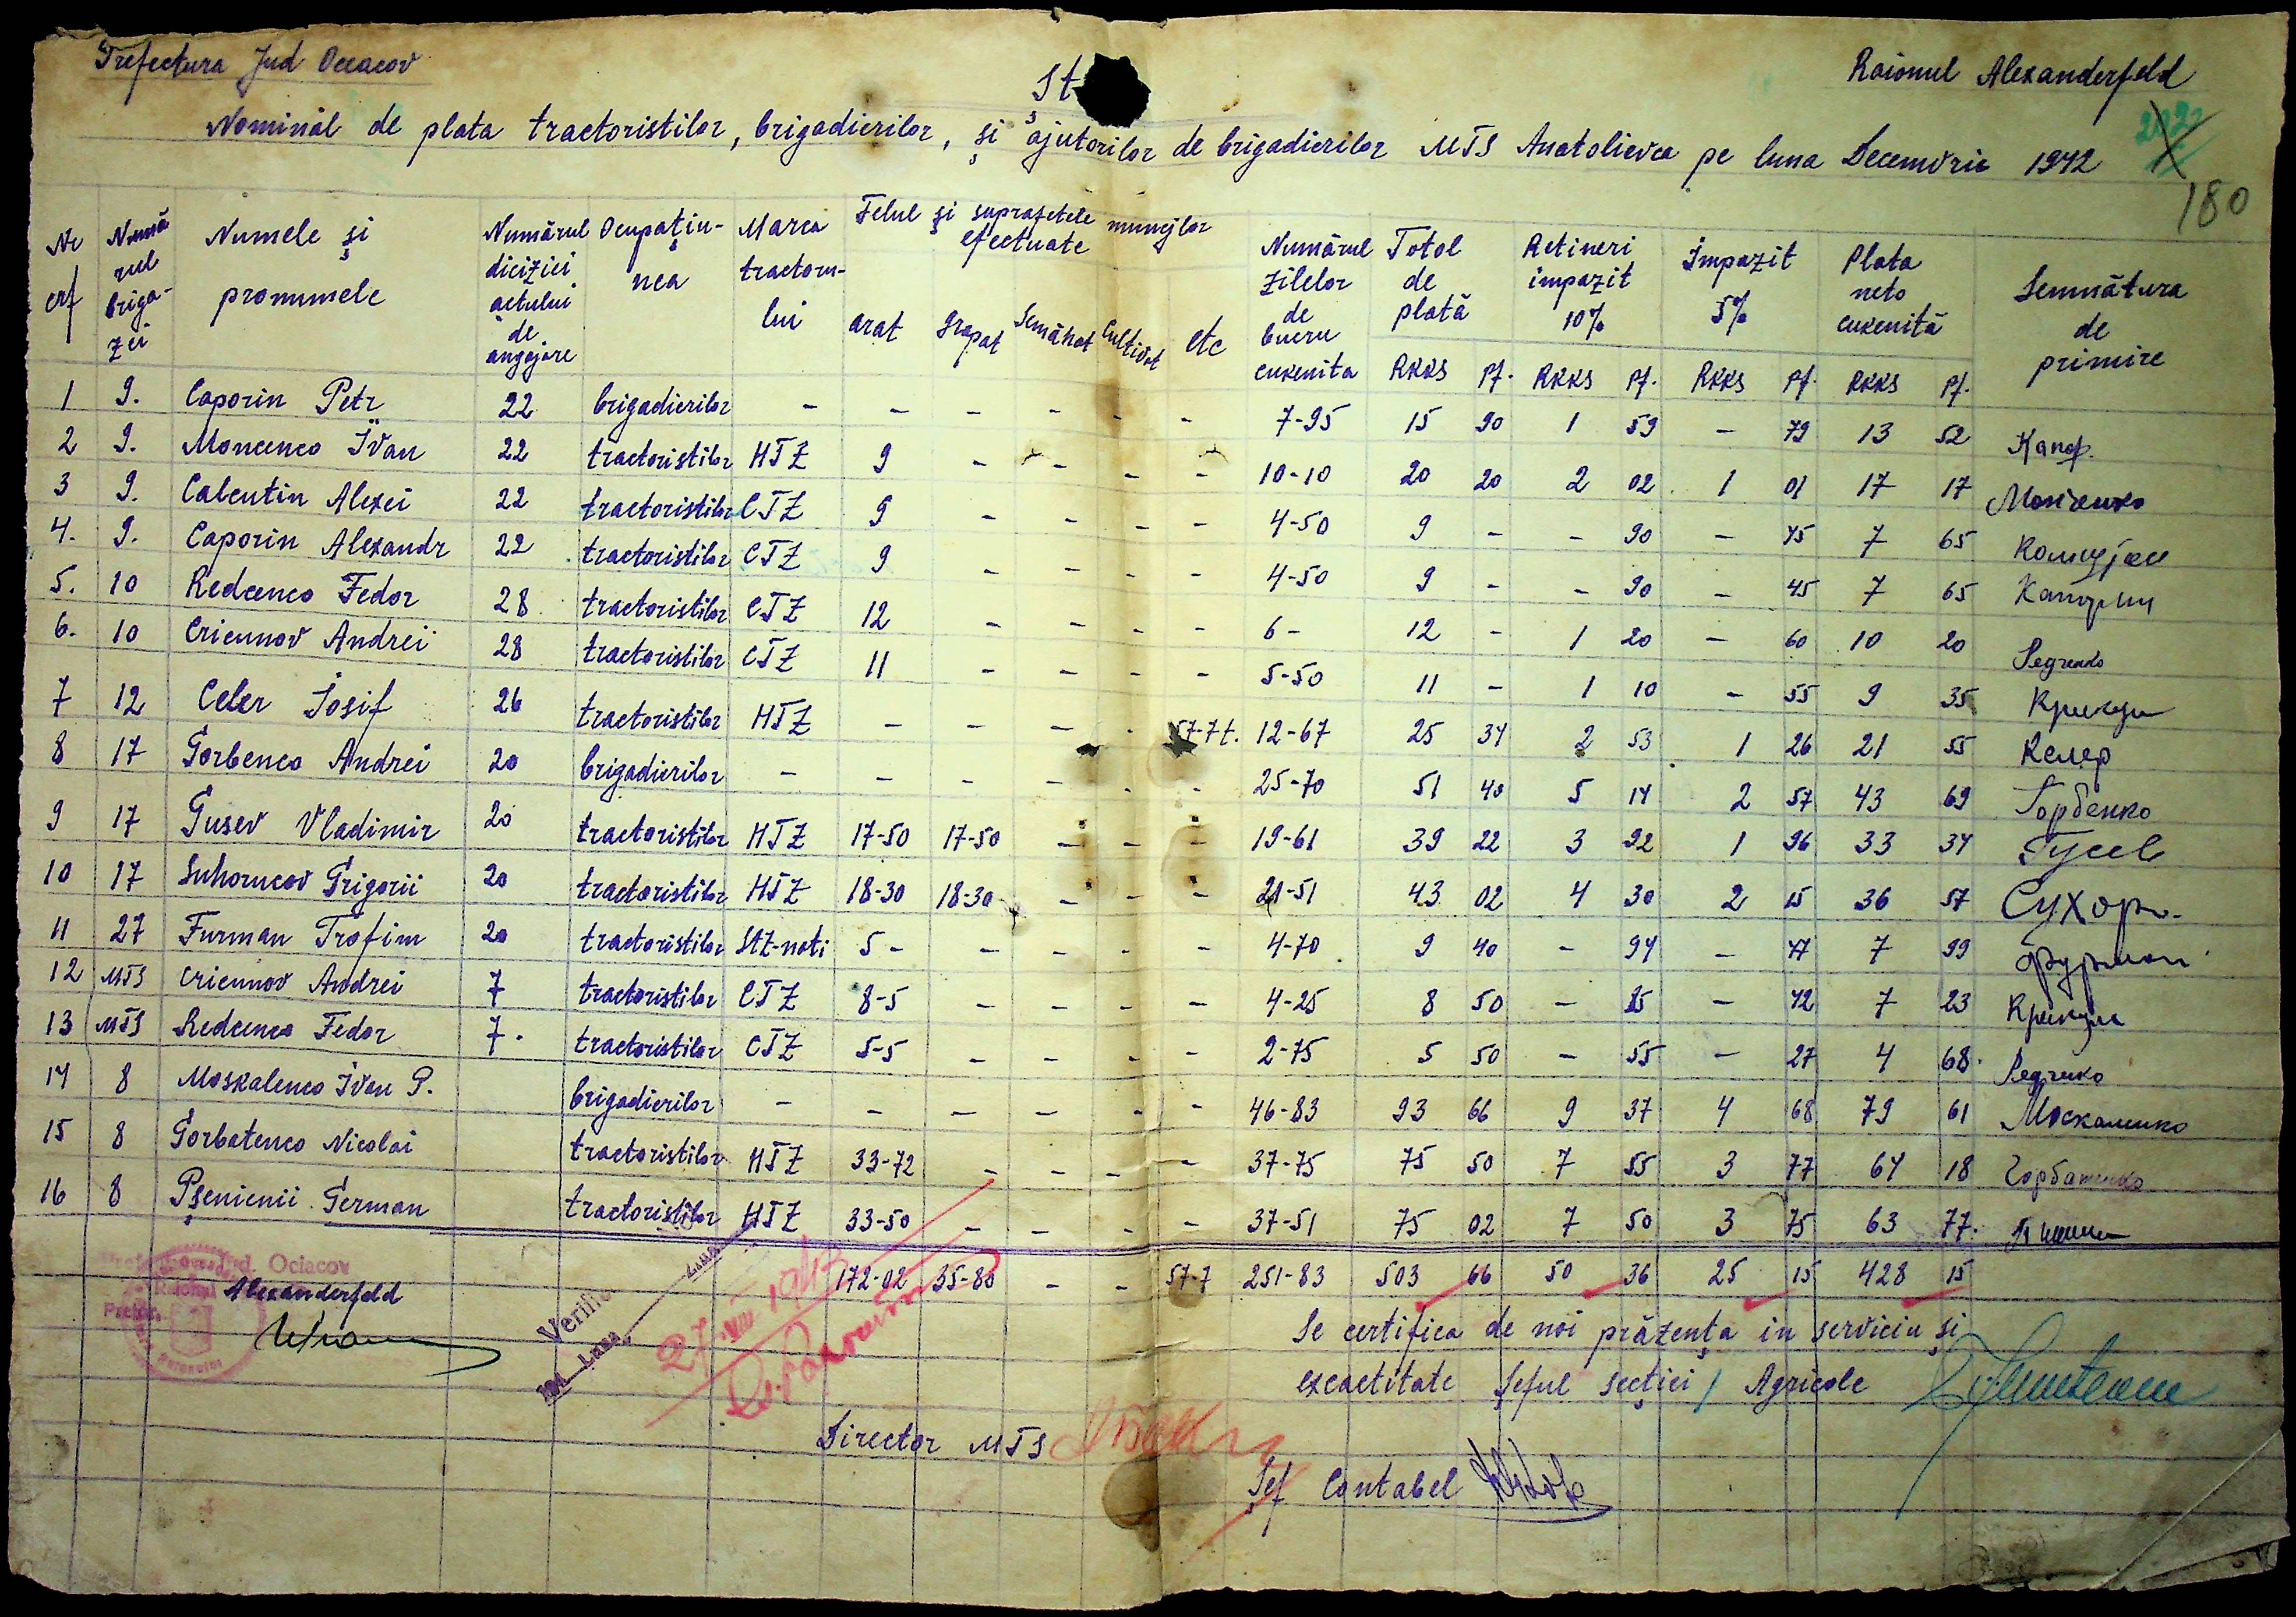 Prefectura Jud Occacov
Raionul Alexanderfeld
St
Nominal de plata tractoristilor, brigadierilor, și ajutorilor de brigadierilor MTS Anatolievca pe luna Decemvrie 1942
180
Nr crt Numărul brigazei Numele și pronumele Numărul diciziei actului de angajare Ocupațiunea Marca tractorului Felul și suprafetele muncilor efectuate Numărul zilelor de lucru cuvenita Total de plată Retineri impozit 10% Impozit 5% Plata neto cuvenită Semnătura de primire
arat grapat semănat cultivat etc RKKS Pf. RKKS Pf. RKKS Pf. RKKS Pf.
1 9. Caporin Petr 22 brigadierilor - - - - - - 7-95 15 90 1 59 - 79 13 52 Капор.
2 9. Moncenco Ivan 22 tractoristilor HTZ 9 - - - - 10-10 20 20 2 02 1 01 17 17 Монченко
3 9. Calentin Alexei 22 tractoristilor CTZ 9 - - - - 4-50 9 - - 90 - 45 7 65
4. 9. Caporin Alexandr 22 tractoristilor CTZ 9 - - - - 4-50 9 - - 90 - 45 7 65 Капорин
5. 10 Redcenco Fedor 28 tractoristilor CTZ 12 - - - - 6- 12 - 1 20 - 60 10 20 Редченко
6. 10 Cricunov Andrei 28 tractoristilor CTZ 11 - - - - 5-50 11 - 1 10 - 55 9 35 Крикун
7 12 Celer Iosif 26 tractoristilor HTZ - - - - 57-7t. 12-67 25 34 2 53 1 26 21 55 Келер
8 17 Gorbenco Andrei 20 brigadierilor - - - - - - 25-70 51 40 5 14 2 57 43 69 Горбенко
9 17 Gusev Vladimir 20 tractoristilor HTZ 17-50 17-50 - - - 19-61 39 22 3 92 1 96 33 34 Гусев
10 17 Suhorucov Grigorii 20 tractoristilor HTZ 18-30 18-30 - - - 21-51 43 02 4 30 2 15 36 57 Сухору.
11 27 Furman Trofim 20 tractoristilor StZ-nati 5- - - - - 4-70 9 40 - 94 - 47 7 99 Фурман
12 MTS Cricunov Andrei 7 tractoristilor CTZ 8-5 - - - - 4-25 8 50 - 85 - 42 7 23 Крикун
13 MTS Redcenco Fedor 7. tractoristilor CTZ 5-5 - - - - 2-75 5 50 - 55 - 27 4 68. Редченко
14 8 Moskalenco Ivan P. brigadierilor - - - - - - 46-83 93 66 9 37 4 68 79 61 Москаленко
15 8 Gorbatenco Nicolai tractoristilor HTZ 33-72 - - - - 37-75 75 50 7 55 3 77 64 18 Горбатенко
16 8 Pșenicnii German tractoristilor HTZ 33-50 - - - - 37-51 75 02 7 50 3 75 63 77.
172-02 35-80 - - 57-7 251-83 503 66 50 36 25 15 428 15
Jud. Ociacov
Alexanderfeld
Se certifica de noi prăzența in serviciu și
excactitate Șeful secției Agricole
Director MTS
Șef Contabel